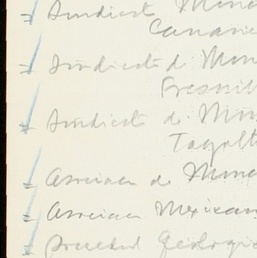 Sindicato Mine
Canane
Sindicato de Min
Fresnil
Sindicato de Min
Tayolt
Asociacn de Mine
Asociacn Mexican
Sociedad Geologic